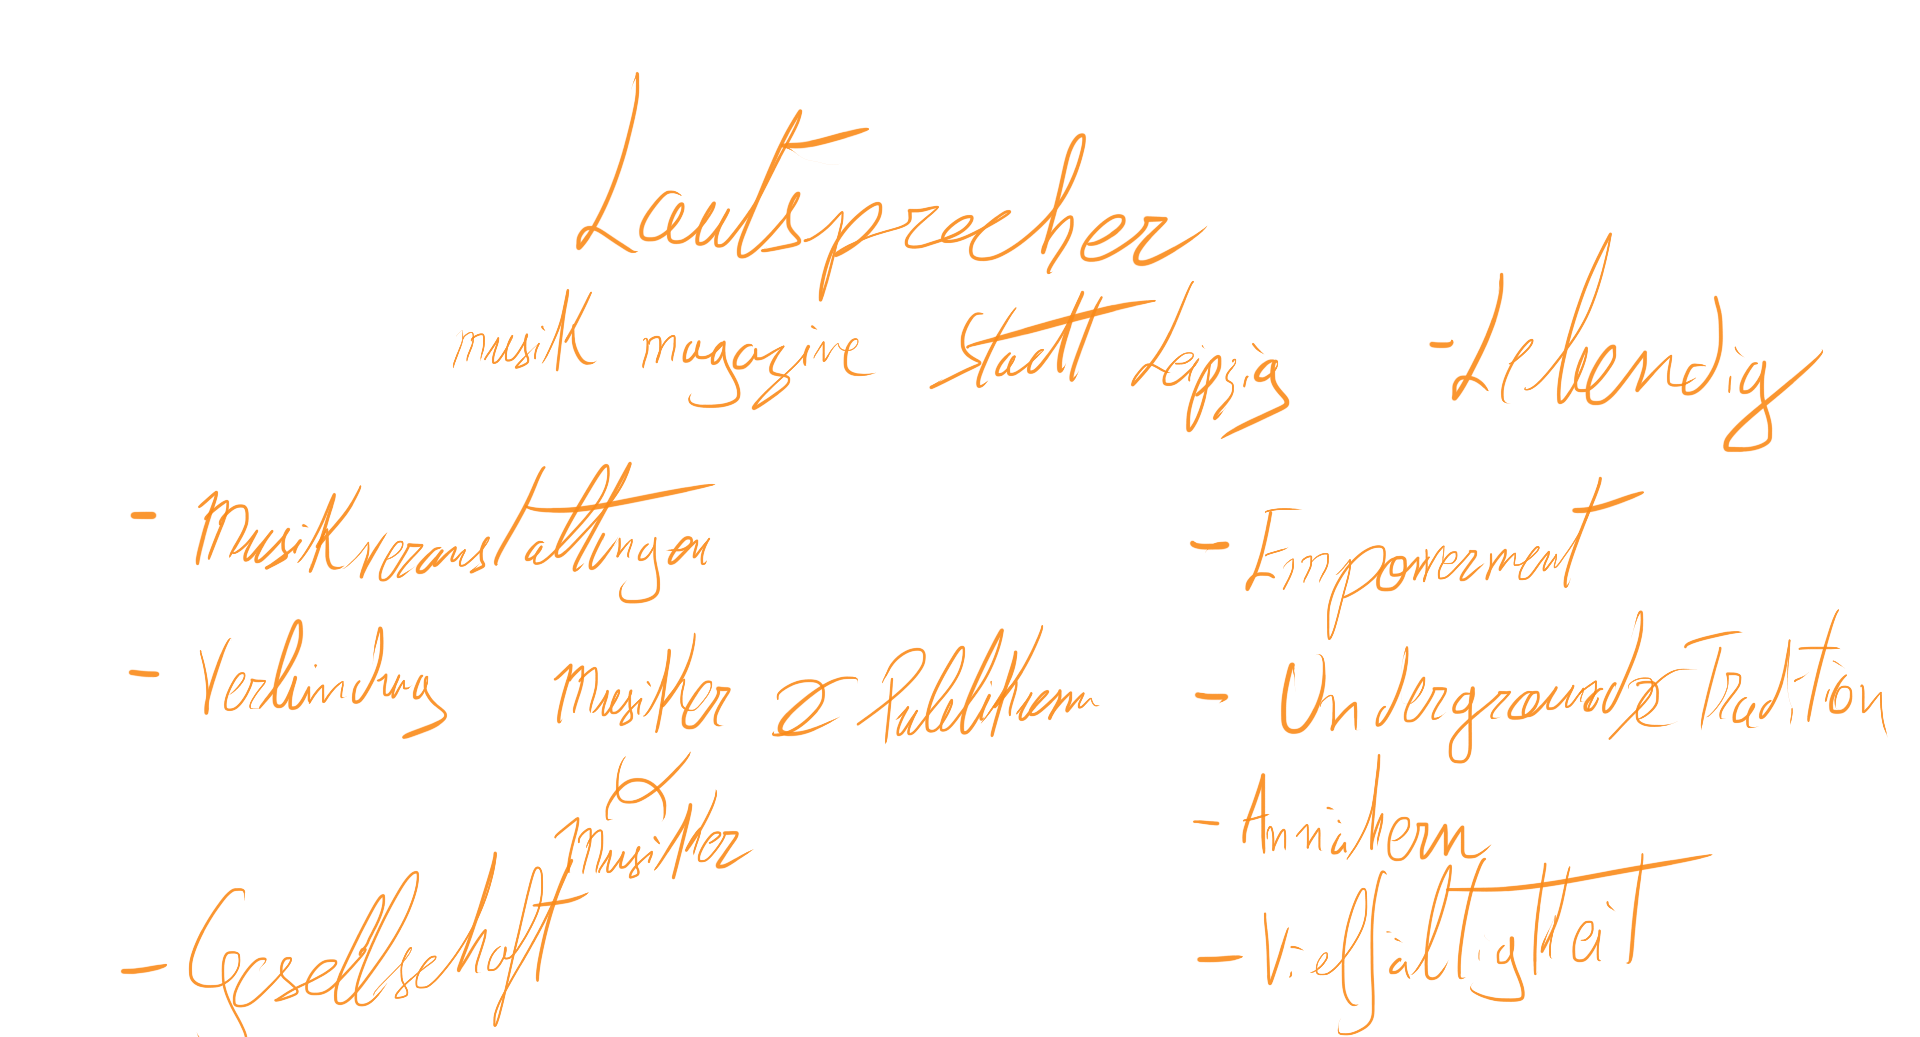 Lautsprecher
musik magazine Stadt Leipzig
- Lebendig
- Musikveranstaltungen
- Verbindung Musiker & Publikum
& Musiker
- Gesellschaft
- Empowerment
- Underground & Tradition
- Annähern
- Vielfältigkeit